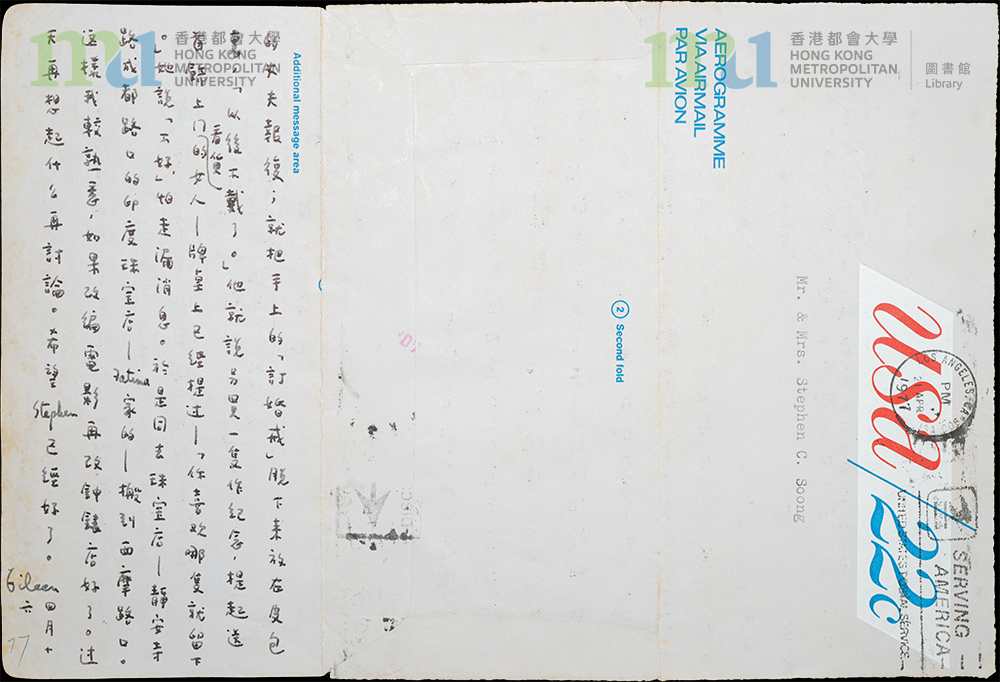 的丈夫報復；就把手上的「訂婚戒」脫下來放在皮包
裏，「以後不戴了。」他就說另買一隻作紀念，提起送
首飾上門看貨的女人—牌桌上已經提过—「你喜欢哪隻就留下
。」她說「不好」怕走漏消息。於是回去珠宝店—靜安寺
路成都路口的印度珠宝店—Fatima家的—搬到西摩路口。
这樣我較熟悉，如果改編電影再改鐘錶店好了。过
天再想起什么再討論。希望Stephen已經好了。
Eileen 四月十
六
77
Additional message area
2 Second fold
AEROGRAMME
VIA AIRMAIL
PAR AVION
Mr. & Mrs. Stephen C. Soong
usa/22c
LOS ANGELES, CA
PM
APR
1977
UNITED STATES POSTAL SERVICE
SERVING
AMERICA
mu
香港都會大學
HONG KONG
METROPOLITAN
UNIVERSITY
mu
香港都會大學
HONG KONG
METROPOLITAN
UNIVERSITY
圖書館
Library